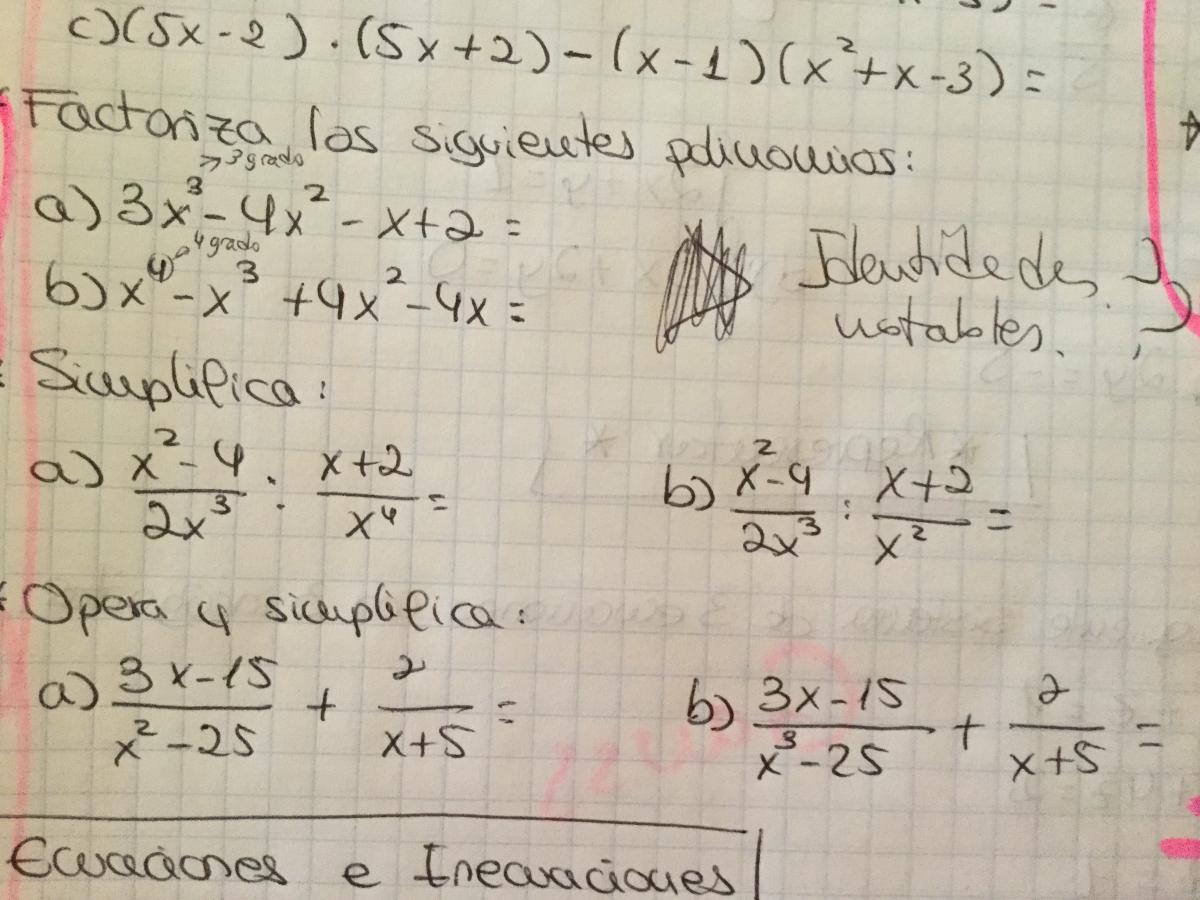 c) (5x-2) · (5x+2) - (x-1) (x²+x-3) =
Factoriza los siguientes polinomios:
→ 3 grado
a) 3x³ - 4x² - x+2 =
→ 4 grado
b) x⁴ - x³ + 4x² - 4x =
Identidades
notables.
Simplifica:
a) (x²-4)/(2x³) : (x+2)/(x⁴) =
b) (x²-4)/(2x³) : (x+2)/(x²) =
Opera y simplifica:
a) (3x-15)/(x²-25) + 2/(x+5) =
b) (3x-15)/(x³-25) + 2/(x+5) =
Ecuaciones e Inecuaciones